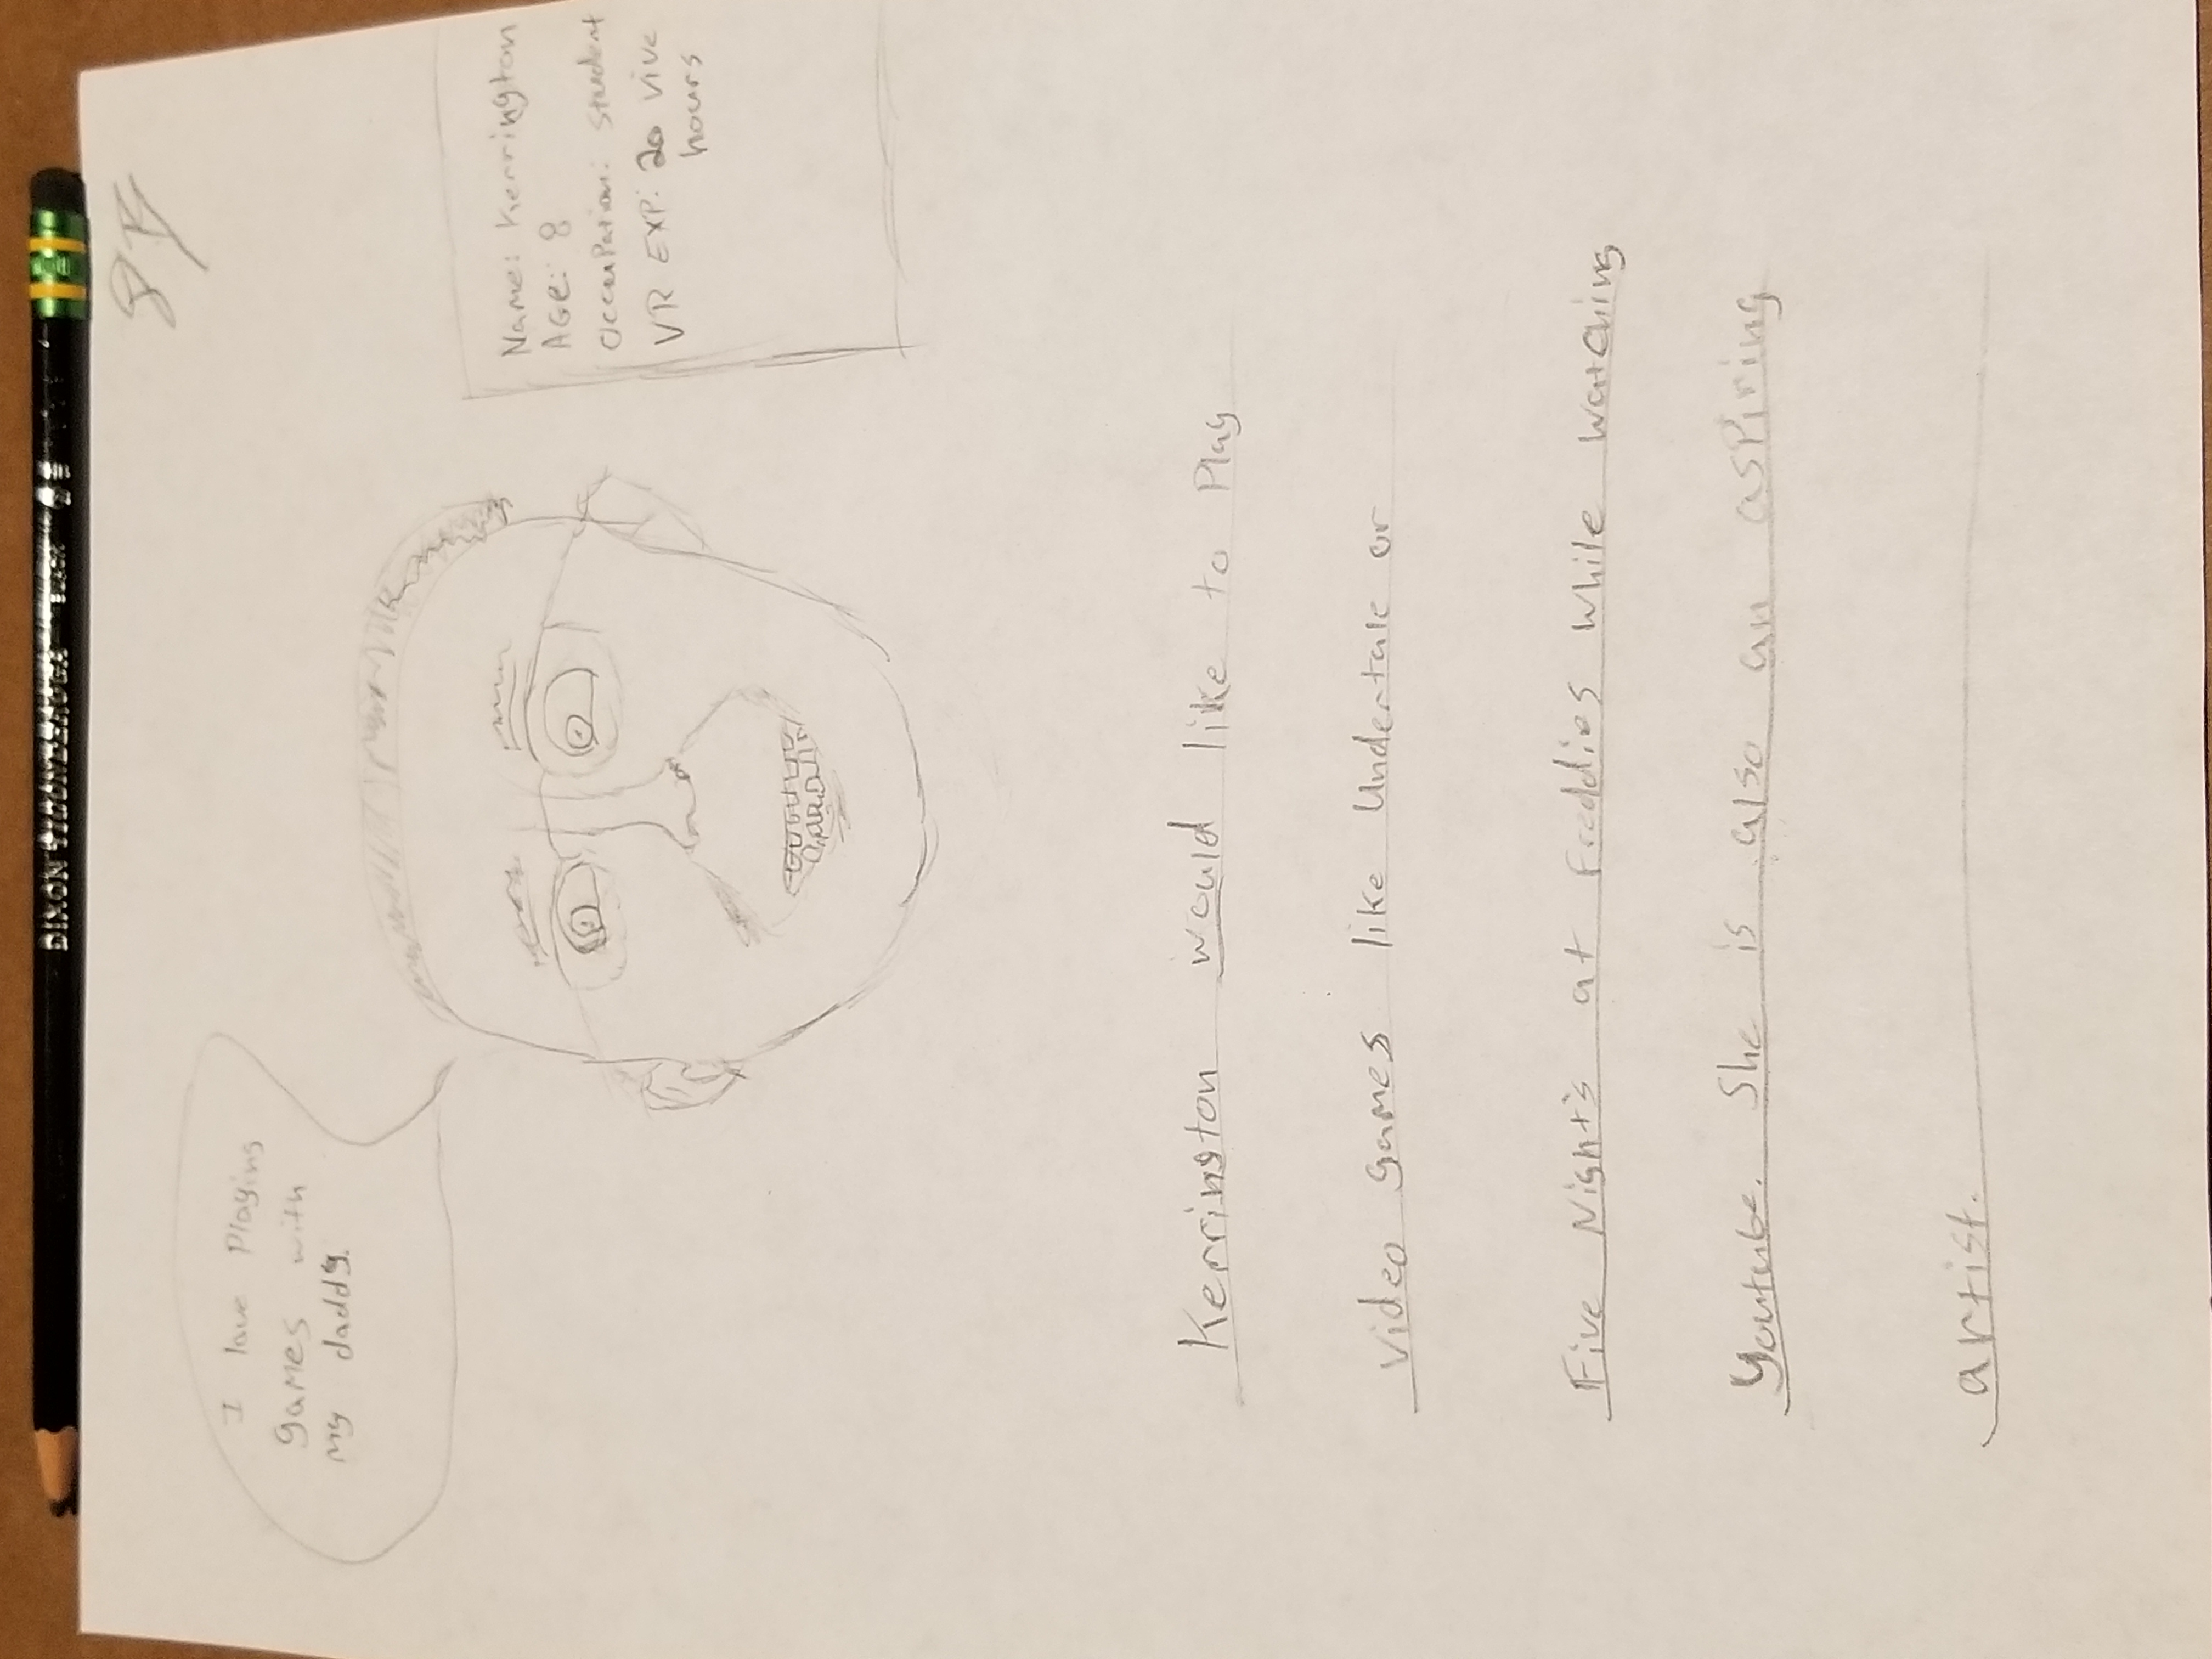 DIXON TICONDEROGA BLACK
I love Playing
games with
my daddy.
Name: Kerrington
Age: 8
Occupation: student
VR EXP: 20 vive
hours
Kerrington would like to Play
Video games like Undertale or
Five Night's at Freddies while watching
Youtube. She is also an aspiring
artist.